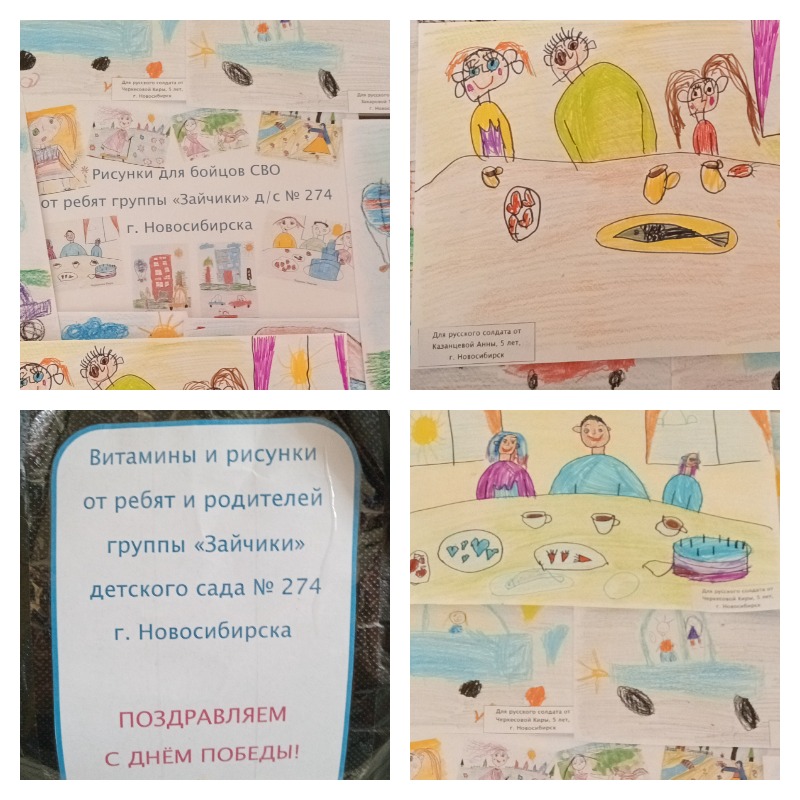 Для русского солдата от
Черкесовой Киры, 5 лет,
г. Новосибирск
Для русского
г. Новос
Рисунки для бойцов СВО
от ребят группы «Зайчики» д/с № 274
г. Новосибирска
Для русского солдата от
Казанцевой Анны, 5 лет,
г. Новосибирск
Витамины и рисунки
от ребят и родителей
группы «Зайчики»
детского сада № 274
г. Новосибирска
ПОЗДРАВЛЯЕМ
С ДНЁМ ПОБЕДЫ!
Для русского солдата от
Черкесовой Киры, 5 лет,
г. Новосибирск
Для русского солдата от
Черкесовой Киры, 5 лет,
г. Новосибирск